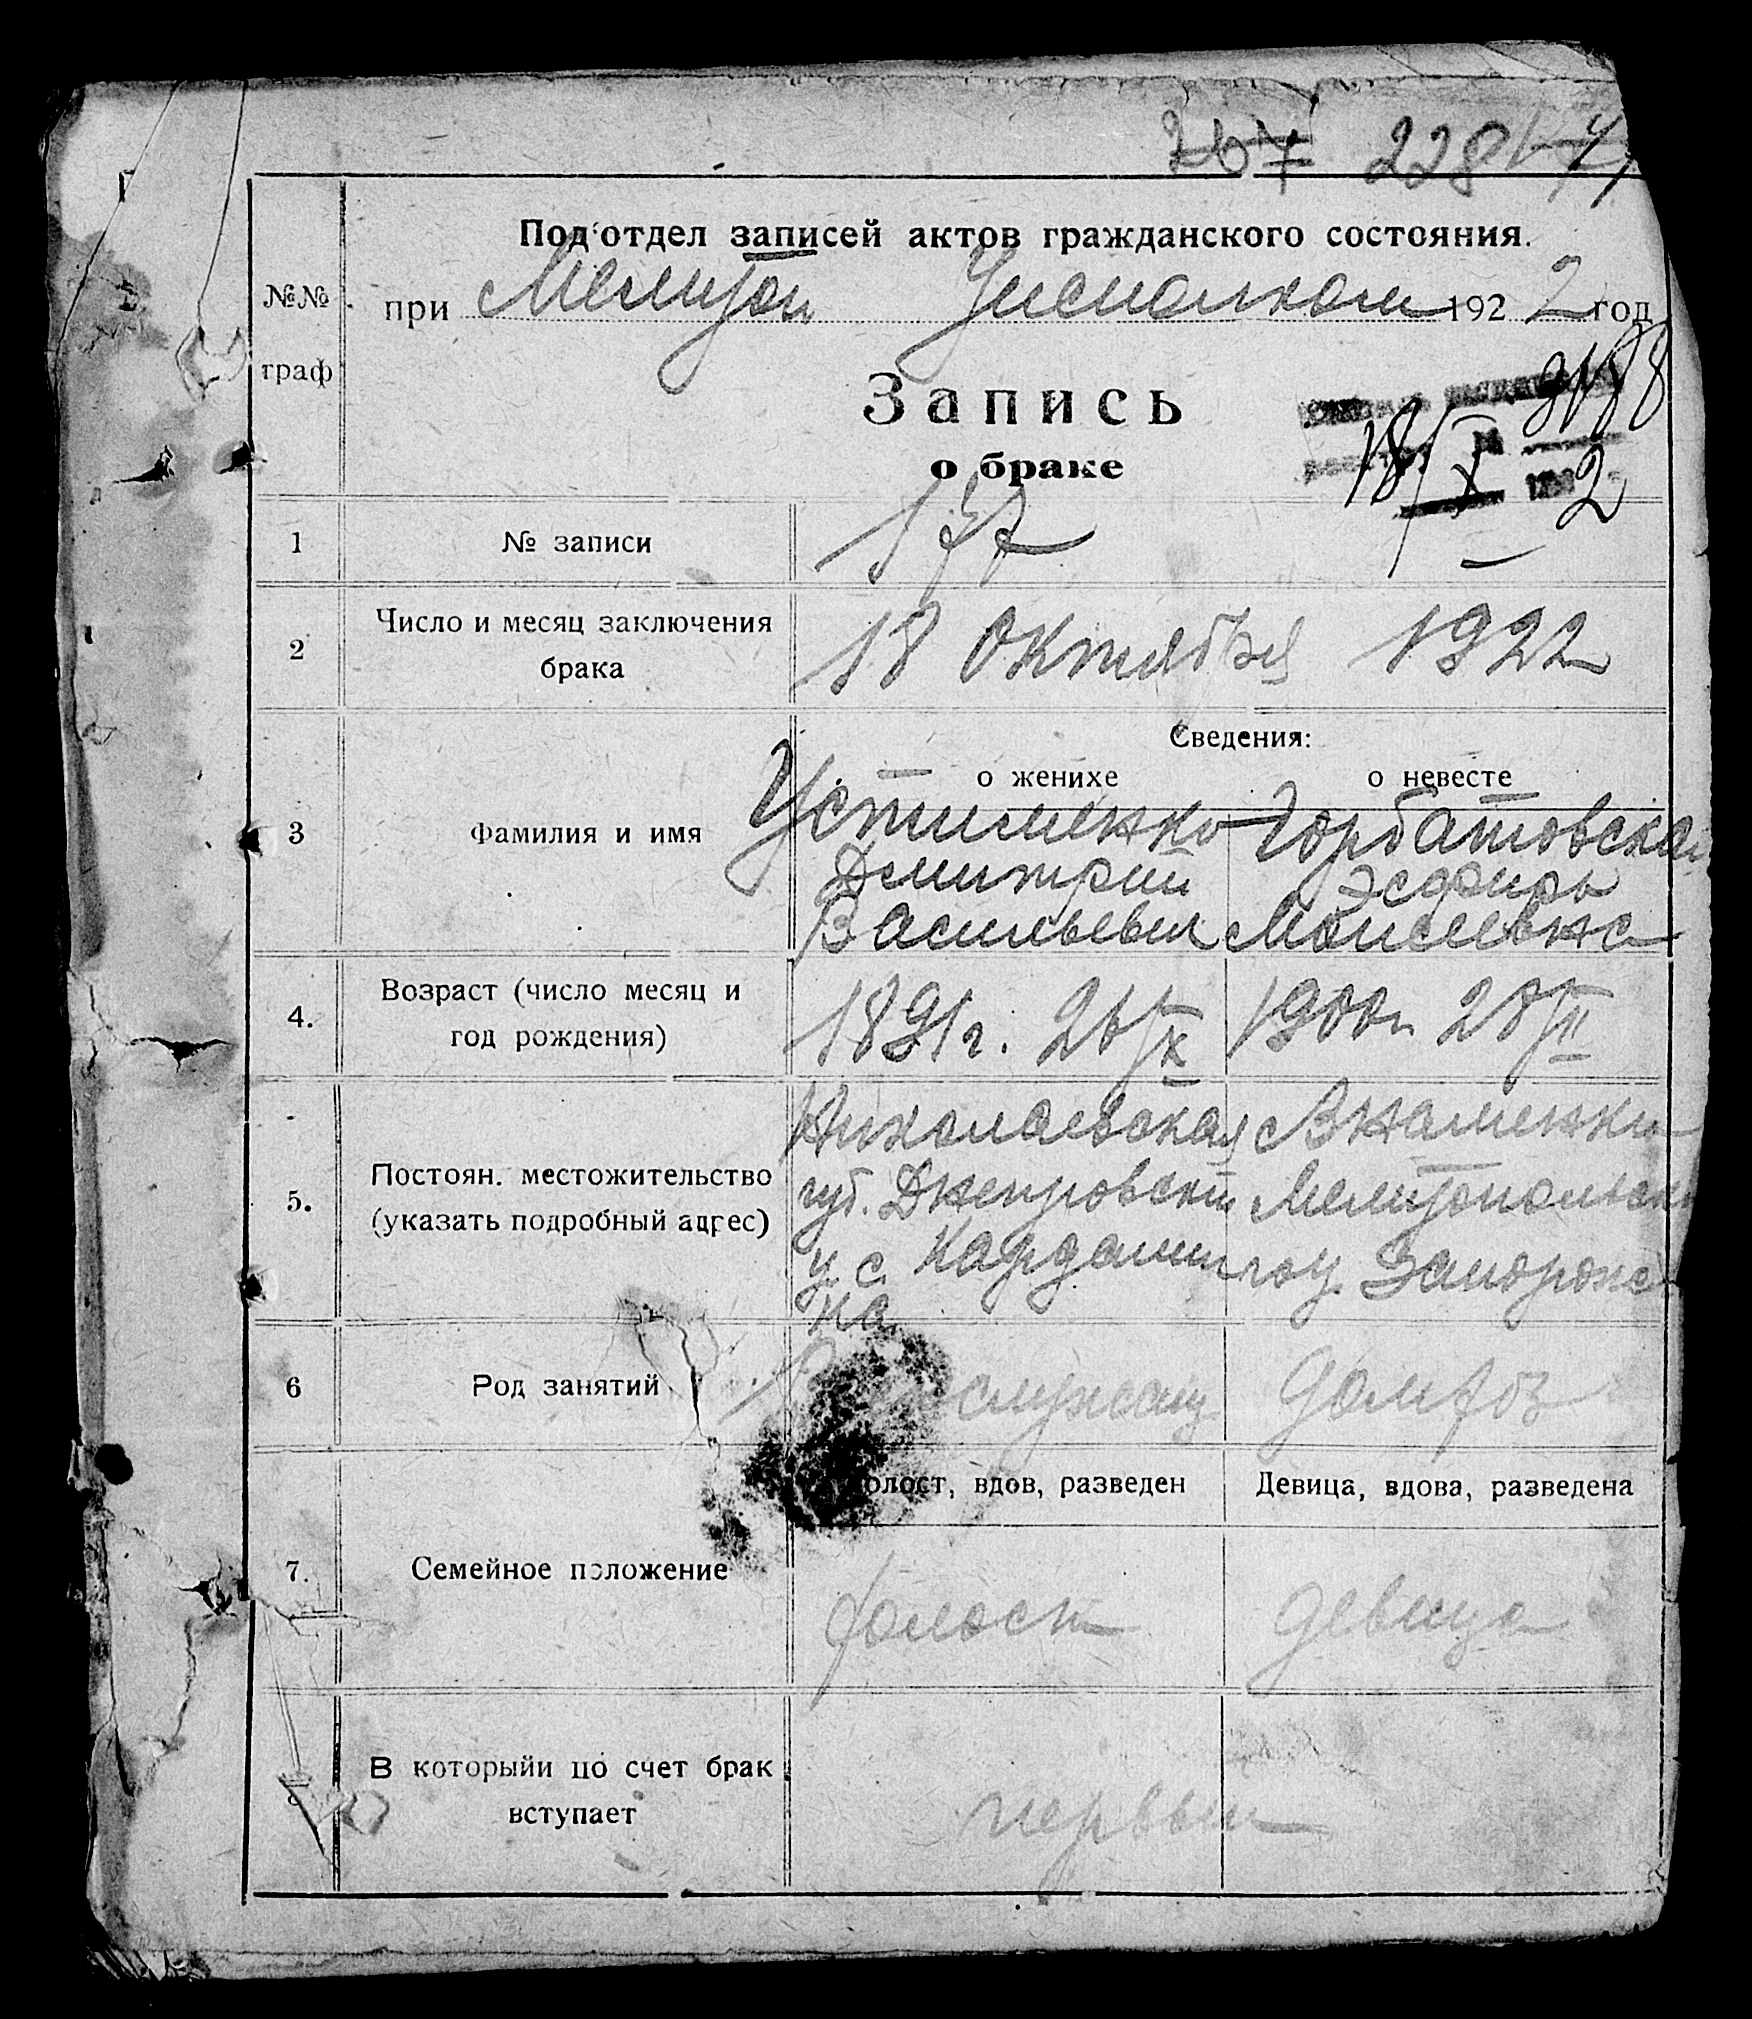 267 228
Подотдел записей актов гражданского состояния.
№№ граф
при Мелитоп Уисполком 1922 год
Запись
о браке
3188
18/X 2
1 № записи 177
2 Число и месяц заключения брака 18 Октября 1922
Сведения:
о женихе о невесте
3 Фамилия и имя
Устименко Горбатовская
Дмитрий Эсфирь
Васильевич Моисеевна
4. Возраст (число месяц и год рождения) 1891г. 26/X 1900г. 28/II
5. Постоян. местожительство (указать подробный адрес)
Николаевская с Знаменки
губ. Днепровский Мелитопольск
у. с. Кардашин гоу. Запорожс
ка
6 Род занятий служащ домхоз
олост, вдов, разведен Девица, вдова, разведена
7. Семейное положение холост девица
В которыйи по счет брак вступает первый